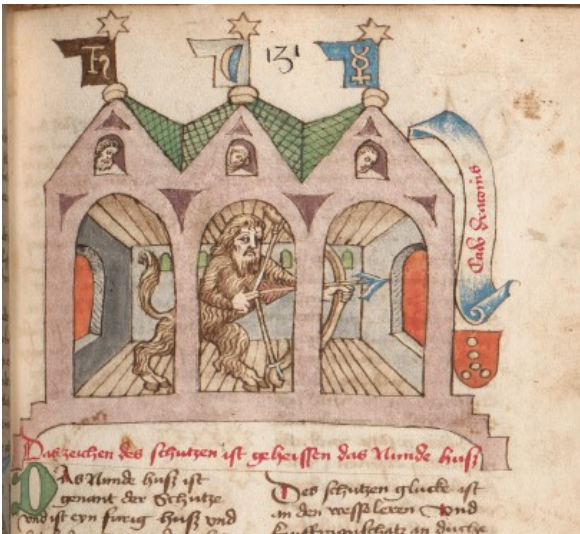 131
Caud draconis
Das zeichen des schutzen ist geheissen das Nunde husß
DAs Nunde husß ist
genant der Schutze
vnd ist eyn furig husß vnd
Des schutzen glucke ist
in den wesseleren vnd